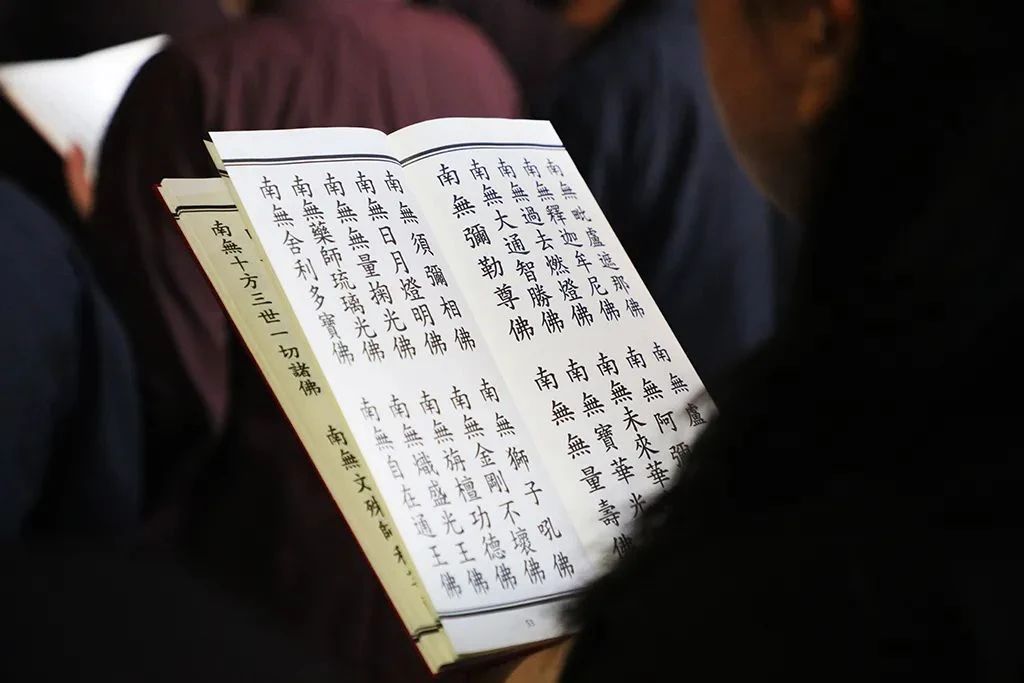 南無毗盧遮那佛
南無釋迦牟尼佛
南無過去燃燈佛
南無大通智勝佛
南無彌勒尊佛
南無盧
南無阿彌
南無未來華
南無寶華光
南無無量壽佛
南無須彌相佛
南無日月燈明佛
南無無量掬光佛
南無藥師琉璃光佛
南無舍利多寶佛
南無獅子吼佛
南無金剛不壞佛
南無旃檀功德佛
南無熾盛光王佛
南無自在通王佛
53
南無十方三世一切諸佛
南無文殊師利